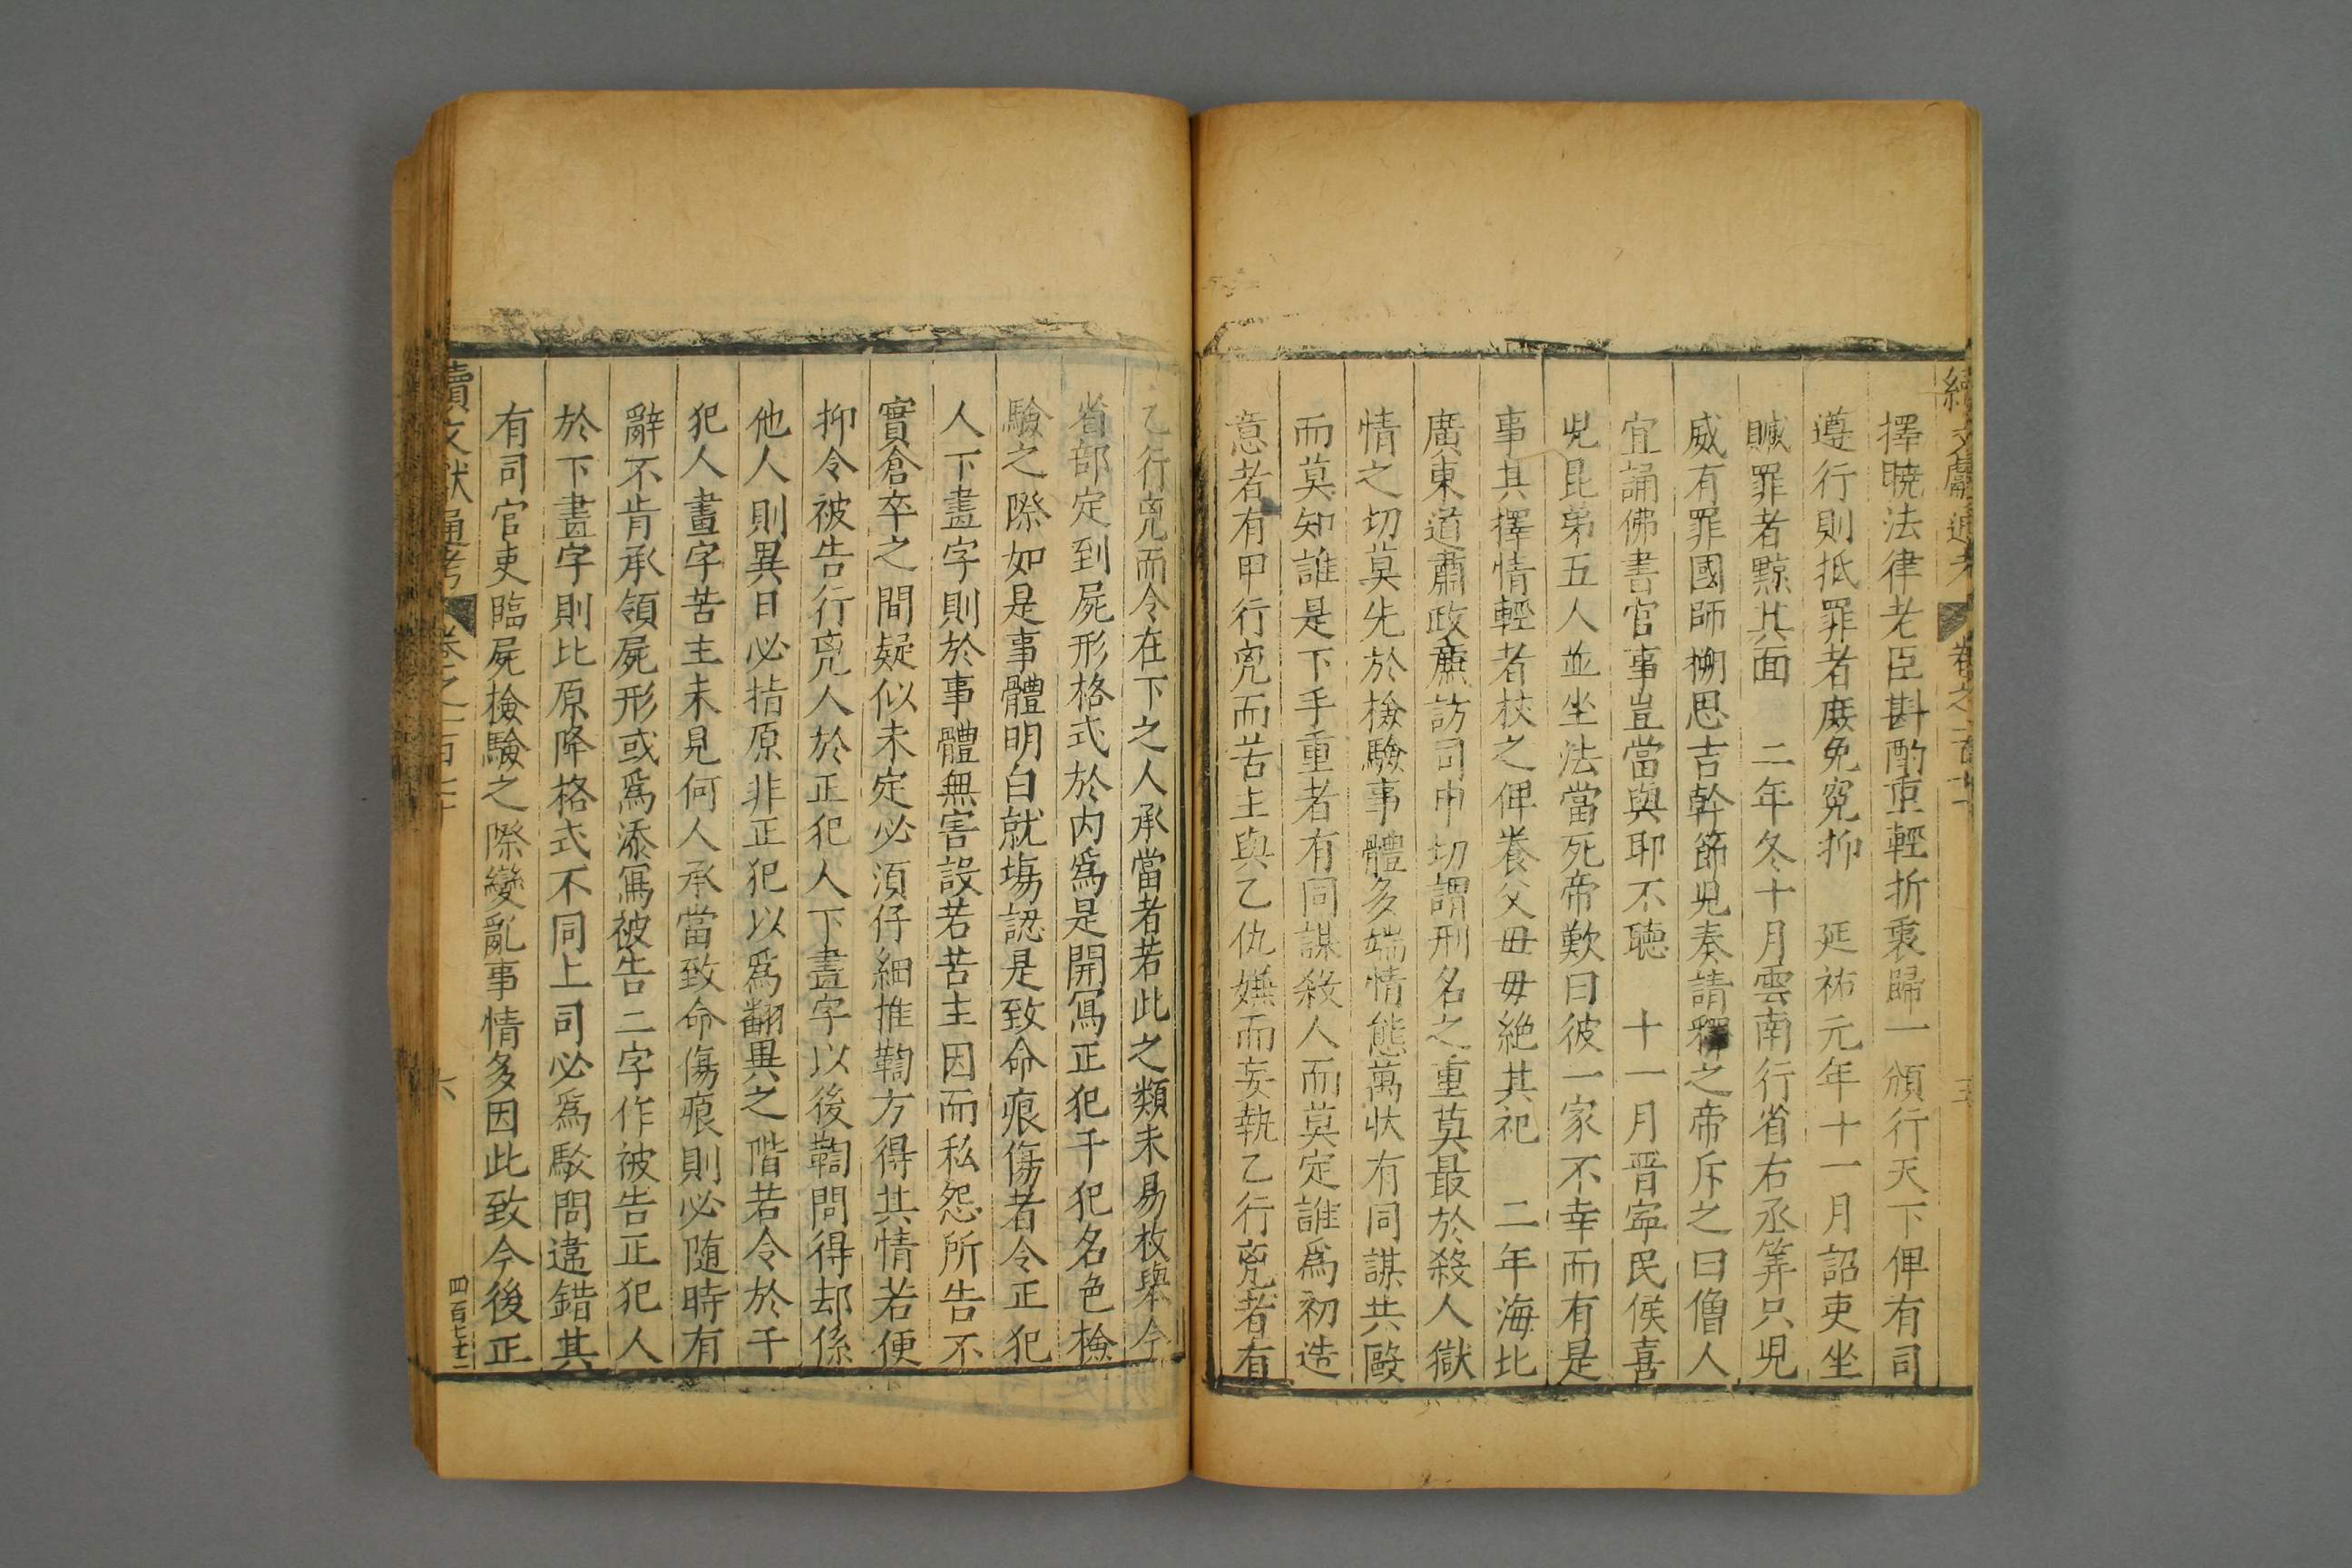 續文獻通考 卷之一百七十
擇曉法律老臣斟酌重輕折衷歸一頒行天下俾有司
遵行則抵罪者庶免冤抑 延祐元年十一月詔吏坐
贓罪者黥其面 二年冬十月雲南行省右丞筭只兒
威有罪國師搠思吉斡節兒奏請釋之帝斥之曰僧人
宜誦佛書官事豈當與耶不聽 十一月晋寧民侯喜
兒昆弟五人並坐法當死帝歎曰彼一家不幸而有是
事其擇情輕者杖之俾養父母毋絶其祀 二年海北
廣東道肅政廉訪司申切謂刑名之重莫最於殺人獄
情之切莫先於檢驗事體多端情態萬狀有同謀共毆
而莫知誰是下手重者有同謀殺人而莫定誰爲初造
意者有甲行兇而苦主與乙仇嫌而妄執乙行兇者有
乙行兇而令在下之人承當者若此之類未易枚舉今
省部定到屍形格式於内爲是開寫正犯干犯名色檢
驗之際如是事體明白就塲認是致命痕傷者令正犯
人下畫字則於事體無害設若苦主因而私怨所告不
實倉卒之間疑似未定必須仔細推鞫方得其情若便
抑令被告行兇人於正犯人下畫字以後鞫問得却係
他人則異日必指原非正犯以爲翻異之階若令於干
犯人畫字苦主未見何人承當致命傷痕則必随時有
辭不肯承領屍形或爲添寫被告二字作被告正犯人
於下畫字則比原降格式不同上司必爲駁問違錯其
有司官吏臨屍檢驗之際變亂事情多因此致今後正
續文獻通考 卷之一百七十 六 四百七十二